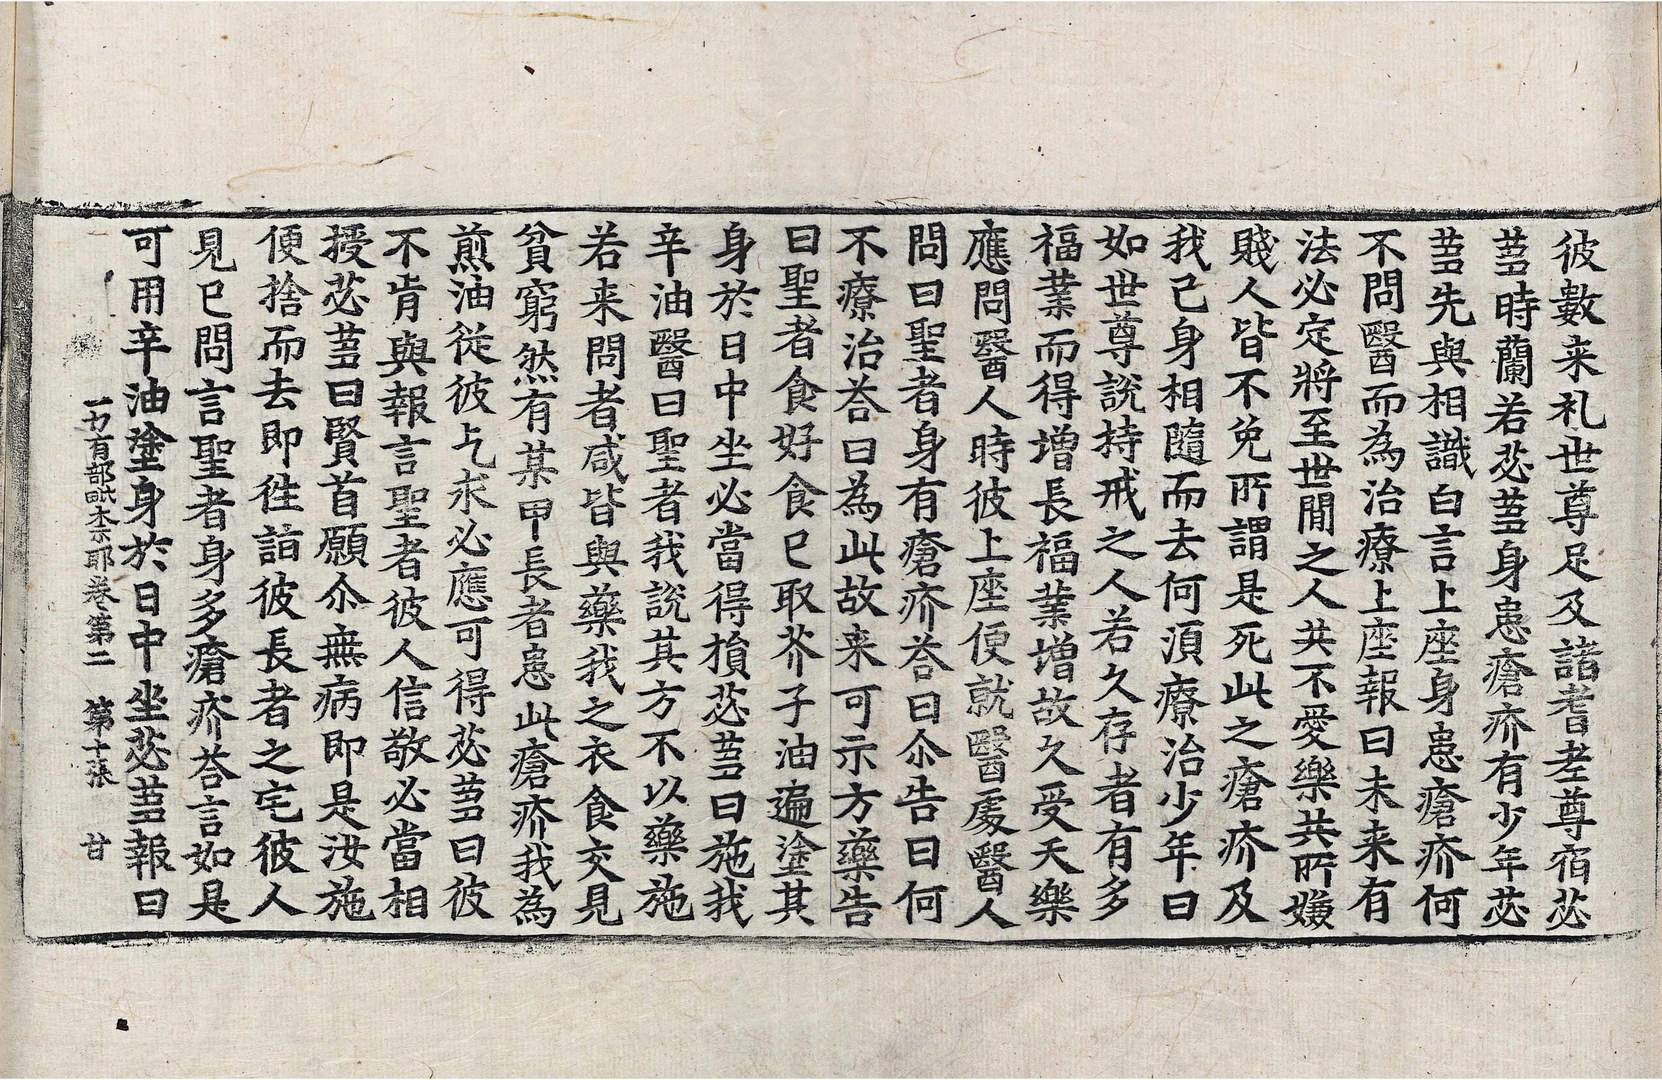 彼數来礼世尊足及諸耆老尊宿苾
蒭時蘭若苾蒭身患瘡疥有少年苾
蒭先與相識白言上座身患瘡疥何
不問醫而為治療上座報曰未来有
法必定將至世間之人共不愛樂共所嫌
賤人皆不免所謂是死此之瘡疥及
我己身相隨而去何須療治少年曰
如世尊說持戒之人若久存者有多
福業而得增長福業增故久受天樂
應問醫人時彼上座便就醫處醫人
問曰聖者身有瘡疥荅曰尒告曰何
不療治荅曰為此故来可示方藥告
曰聖者食好食已取芥子油遍塗其
身於日中坐必當得損苾蒭曰施我
辛油醫曰聖者我說其方不以藥施
若来問者咸皆與藥我之衣食交見
貧窮然有某甲長者患此瘡疥我為
煎油從彼乞求必應可得苾蒭曰彼
不肯與報言聖者彼人信敬必當相
授苾蒭曰賢首願尒無病即是汝施
便捨而去即徃詣彼長者之宅彼人
見已問言聖者身多瘡疥荅言如是
可用辛油塗身於日中坐苾蒭報曰
一切有部毗奈耶卷第二 第十張 甘